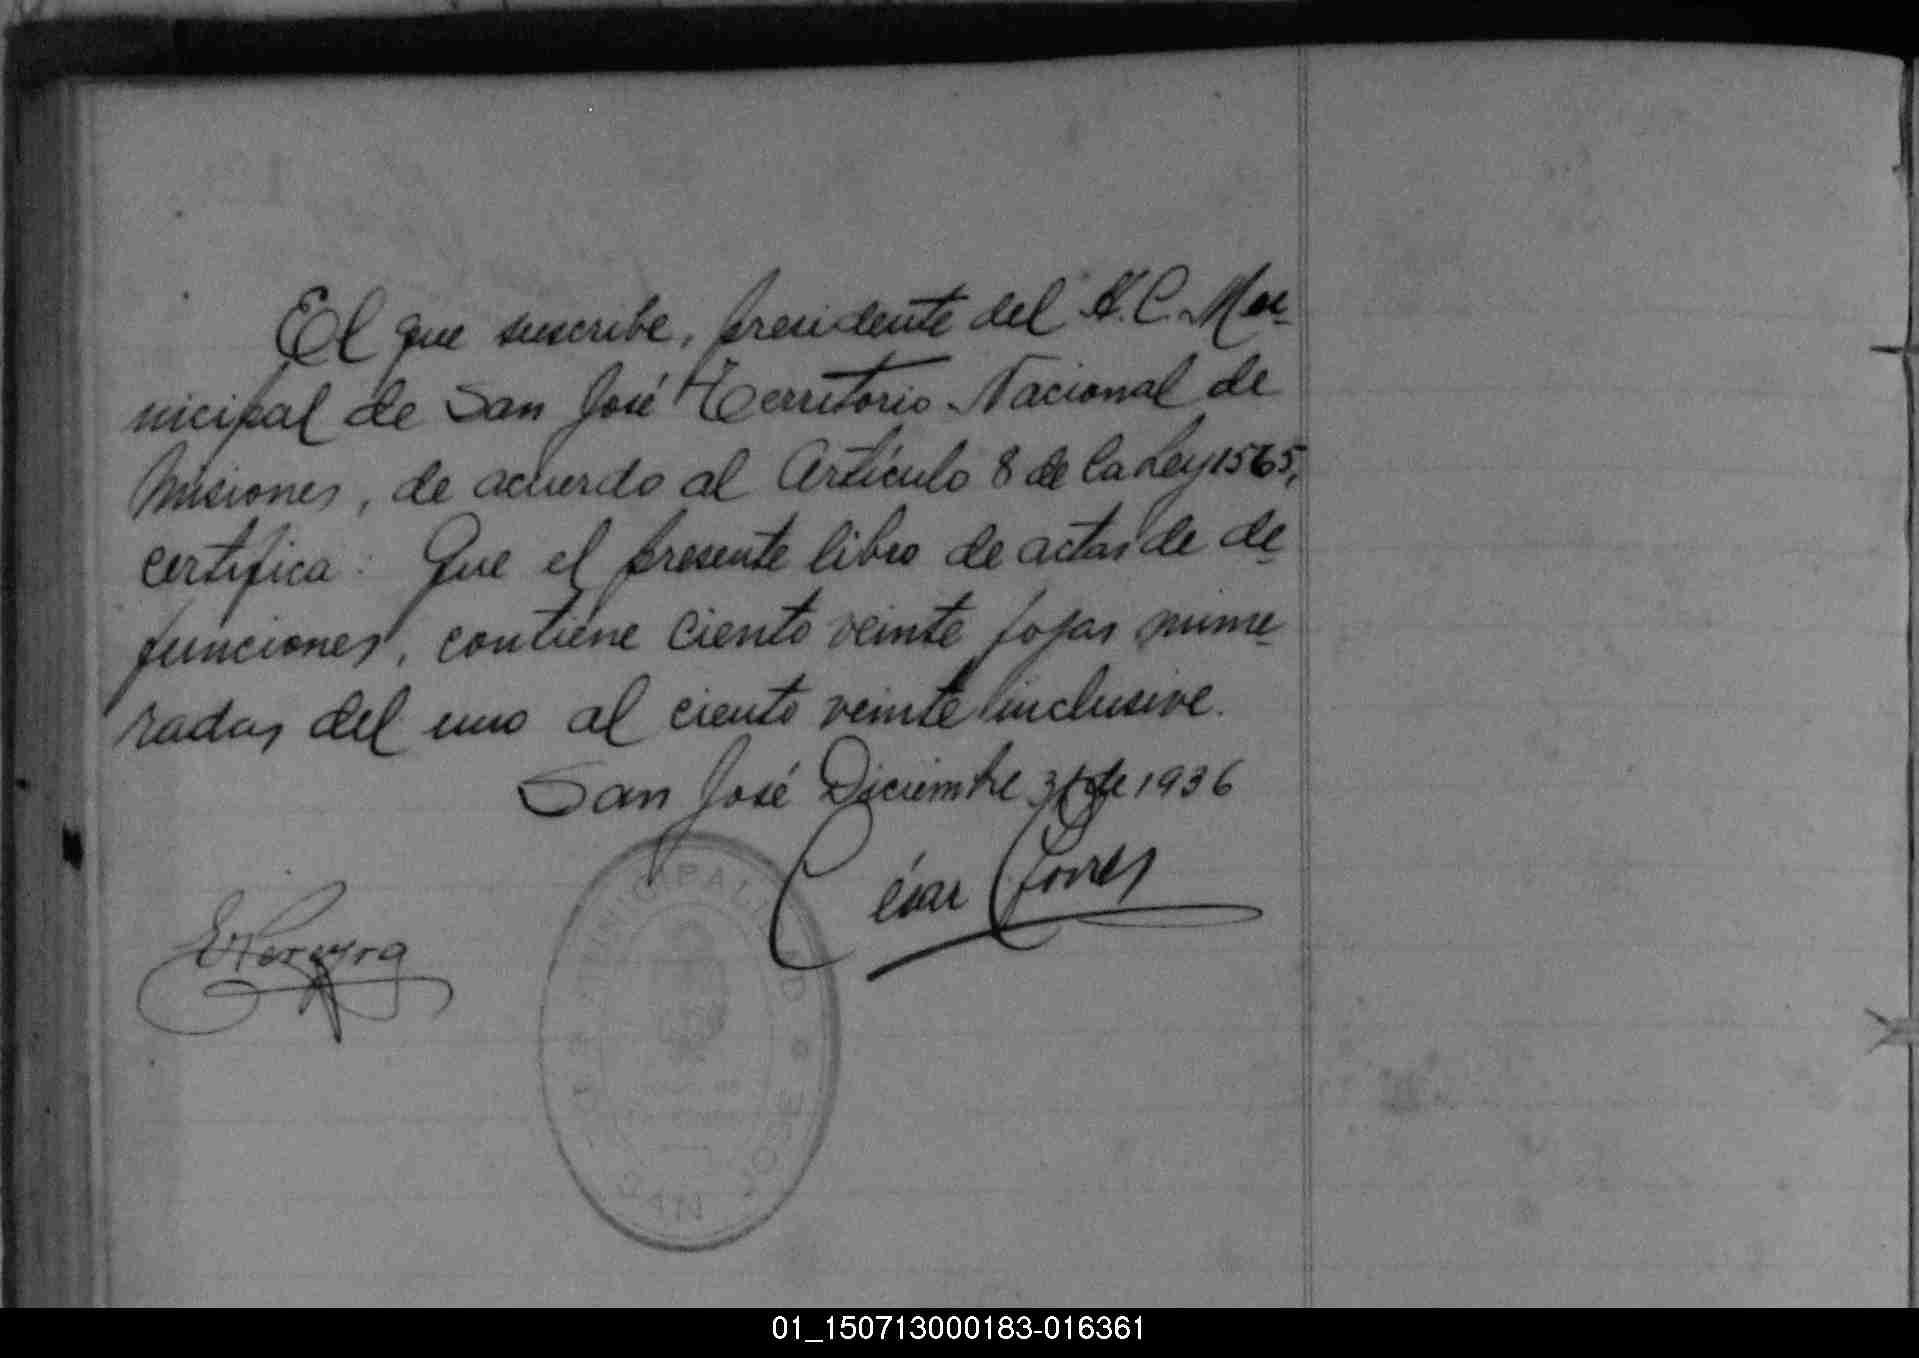 El que suscribe, presidente del H. C. Mu-
nicipal de San José Territorio Nacional de
Misiones, de acuerdo al Artículo 8 de la Ley 1565,
certifica: Que el presente libro de actas de de-
funciones, contiene ciento veinte fojas nume-
radas del uno al ciento veinte inclusive.
San José Diciembre 31 de 1936
César
MUNICIPALIDAD
SAN JOSE
01_150713000183-016361